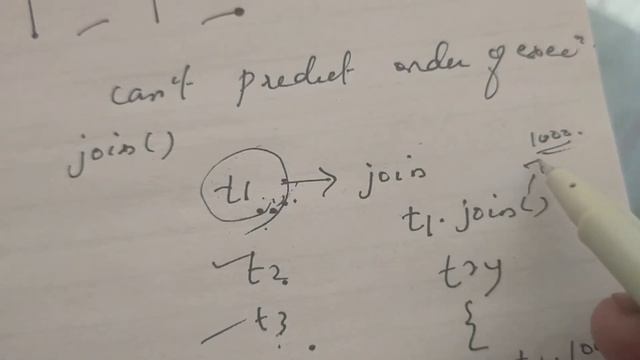 can't predict order of exec^n
join()
t1 → join
1000.
t1.join()
t2
try
t3
{